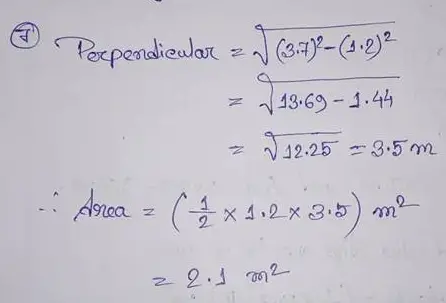 ७ Perpendicular = √(3.7)² - (1.2)²
= √13.69 - 1.44
= √12.25 = 3.5 m
∴ Area = (1/2 × 1.2 × 3.5) m²
= 2.1 m²